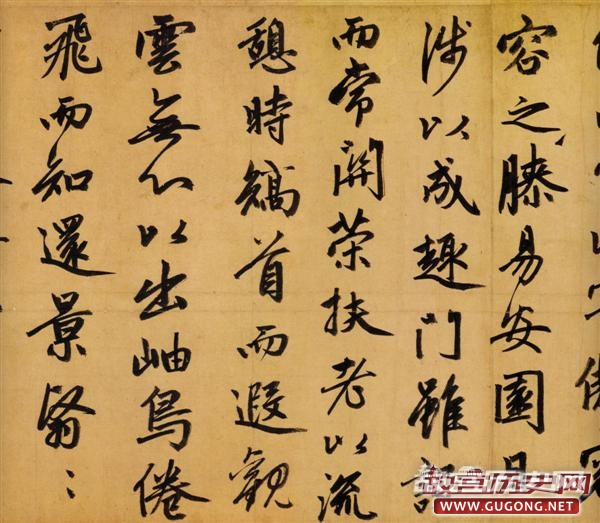 容之膝易安園日
涉以成趣門雖設
而常關策扶老以流
憩時矯首而遐觀
雲無心以出岫鳥倦
飛而知還景翳〻
故宫历史网
WWW.GUGONG.NET